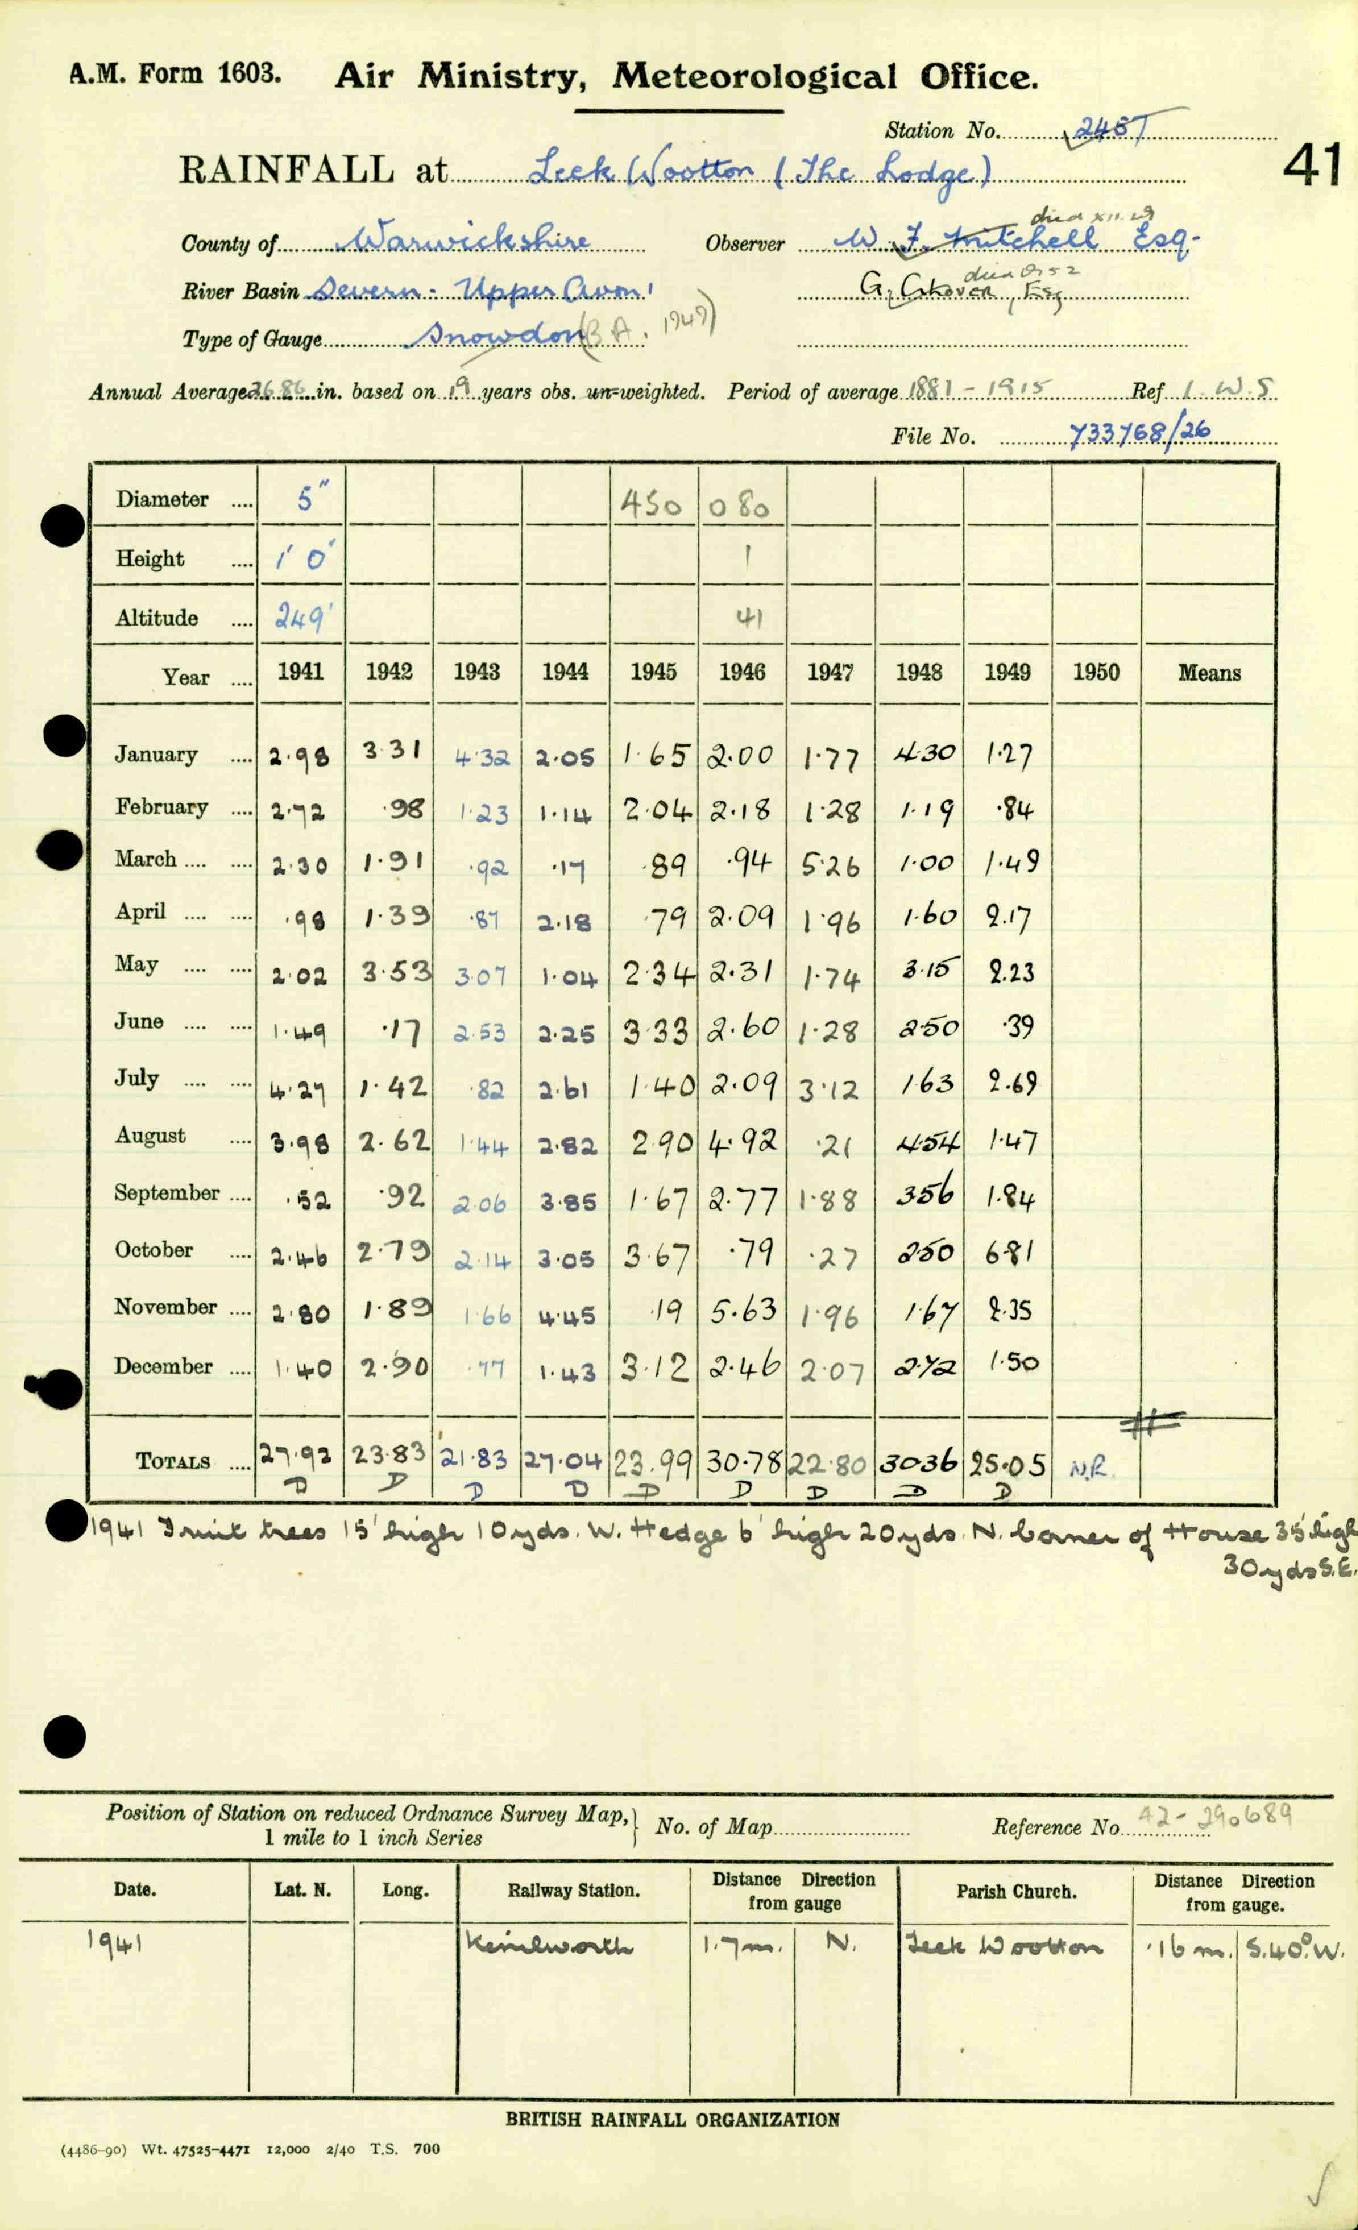 A.M. Form 1603. Air Ministry, Meteorological Office.
Station No. 2457
41
RAINFALL at Leek Wootton (The Lodge)
died XII.29
County of Warwickshire Observer W. F. Mitchell Esq.
died 1952
River Basin Severn - Upper Avon G. Glover, Esq
Type of Gauge Snowdon (B A. 1949)
Annual Average 26.86 in. based on 19 years obs. un-weighted. Period of average 1881 - 1915 Ref I. W. S
File No. 733768/26
Diameter 5" 450 080
Height 1' 0" 1
Altitude 249' 41
Year 1941 1942 1943 1944 1945 1946 1947 1948 1949 1950 Means
January 2.98 3.31 4.32 2.05 1.65 2.00 1.77 4.30 1.27
February 2.72 .98 1.23 1.14 2.04 2.18 1.28 1.19 .84
March 2.30 1.91 .92 .17 .89 .94 5.26 1.00 1.49
April .98 1.39 .87 2.18 .79 2.09 1.96 1.60 2.17
May 2.02 3.53 3.07 1.04 2.34 2.31 1.74 3.15 2.23
June 1.49 .17 2.53 2.25 3.33 2.60 1.28 2.50 .39
July 4.27 1.42 .82 2.61 1.40 2.09 3.12 1.63 2.69
August 3.98 2.62 1.44 2.82 2.90 4.92 .21 4.54 1.47
September .52 .92 2.06 3.85 1.67 2.77 1.88 3.56 1.84
October 2.46 2.79 2.14 3.05 3.67 .79 .27 2.50 6.81
November 2.80 1.89 1.66 4.45 .19 5.63 1.96 1.67 2.35
December 1.40 2.90 .77 1.43 3.12 2.46 2.07 2.72 1.50
TOTALS 27.92 23.83 21.83 27.04 23.99 30.78 22.80 30.36 25.05 N.R.
D D D D D D D D D
1941 Fruit trees 15' high 10 yds. W. Hedge 6' high 20 yds. N. Corner of House 35' high
30 yds S.E.
Position of Station on reduced Ordnance Survey Map, 1 mile to 1 inch Series No. of Map Reference No. 42-290689
Date. Lat. N. Long. Railway Station. Distance Direction from gauge Parish Church. Distance Direction from gauge.
1941 Kenilworth 1.7 m. N. Leek Wootton .16 m. S.40°.W.
BRITISH RAINFALL ORGANIZATION
(4486-90) Wt. 47525-4471 12,000 2/40 T.S. 700